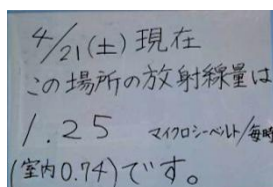 4/21(土)現在
この場所の放射線量は
1.25 マイクロシーベルト/毎時
(室内0.74)です。